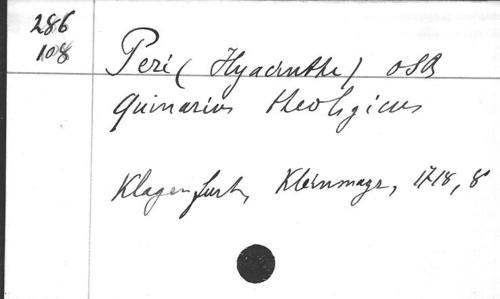 286
108
Peri (Hyacinthe) OSB
Quinarius theologicus
Klagenfurt, Kleinmayr, 1718, 8°